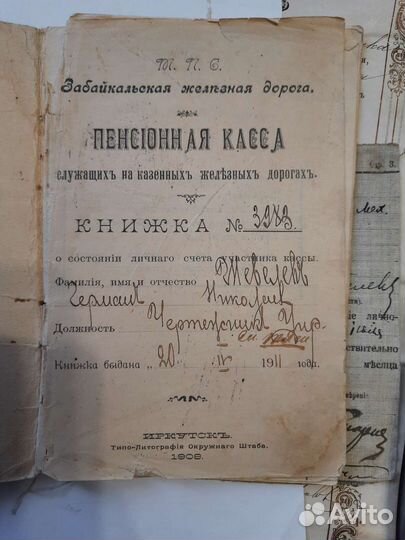 М. П. С.
Забайкальская желѣзная дорога.
ПЕНСІОННАЯ КАССА
служащихъ на казенныхъ желѣзныхъ дорогахъ.
КНИЖКА № 3283
о состояніи личнаго счета участника кассы.
Фамилія, имя и отчество Шевелевъ
Николай
Должность Чертежникъ Упр.
Книжка выдана „ 20 „ IV 1911 года.
ИРКУТСКЪ.
Типо-Литографія Окружнаго Штаба.
1908.
мѣсяца
Avito